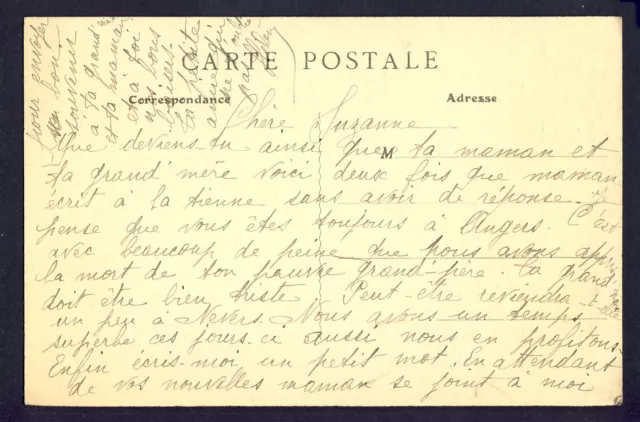 CARTE POSTALE
Correspondance
Adresse
M
Chère Suzanne
Que deviens-tu ainsi que ta maman et
ta grand' mère voici deux fois que maman
écrit à la tienne sans avoir de réponse. Je
pense que vous êtes toujours à Angers. C'est
avec beaucoup de peine que nous avons appris
la mort de ton pauvre grand-père. Ta grand-
mère
doit être bien triste Peut-être reviendra-t-elle
un peu à Nevers. Nous avons un temps
superbe ces jours-ci aussi nous en profitons.
Enfin écris-moi un petit mot. En attendant
de vos nouvelles maman se joint à moi
pour envoyer
un bon
souvenir
à ta grand' mère
et ta maman
et à toi
nos bons
baisers.
Ta petite
amie qui